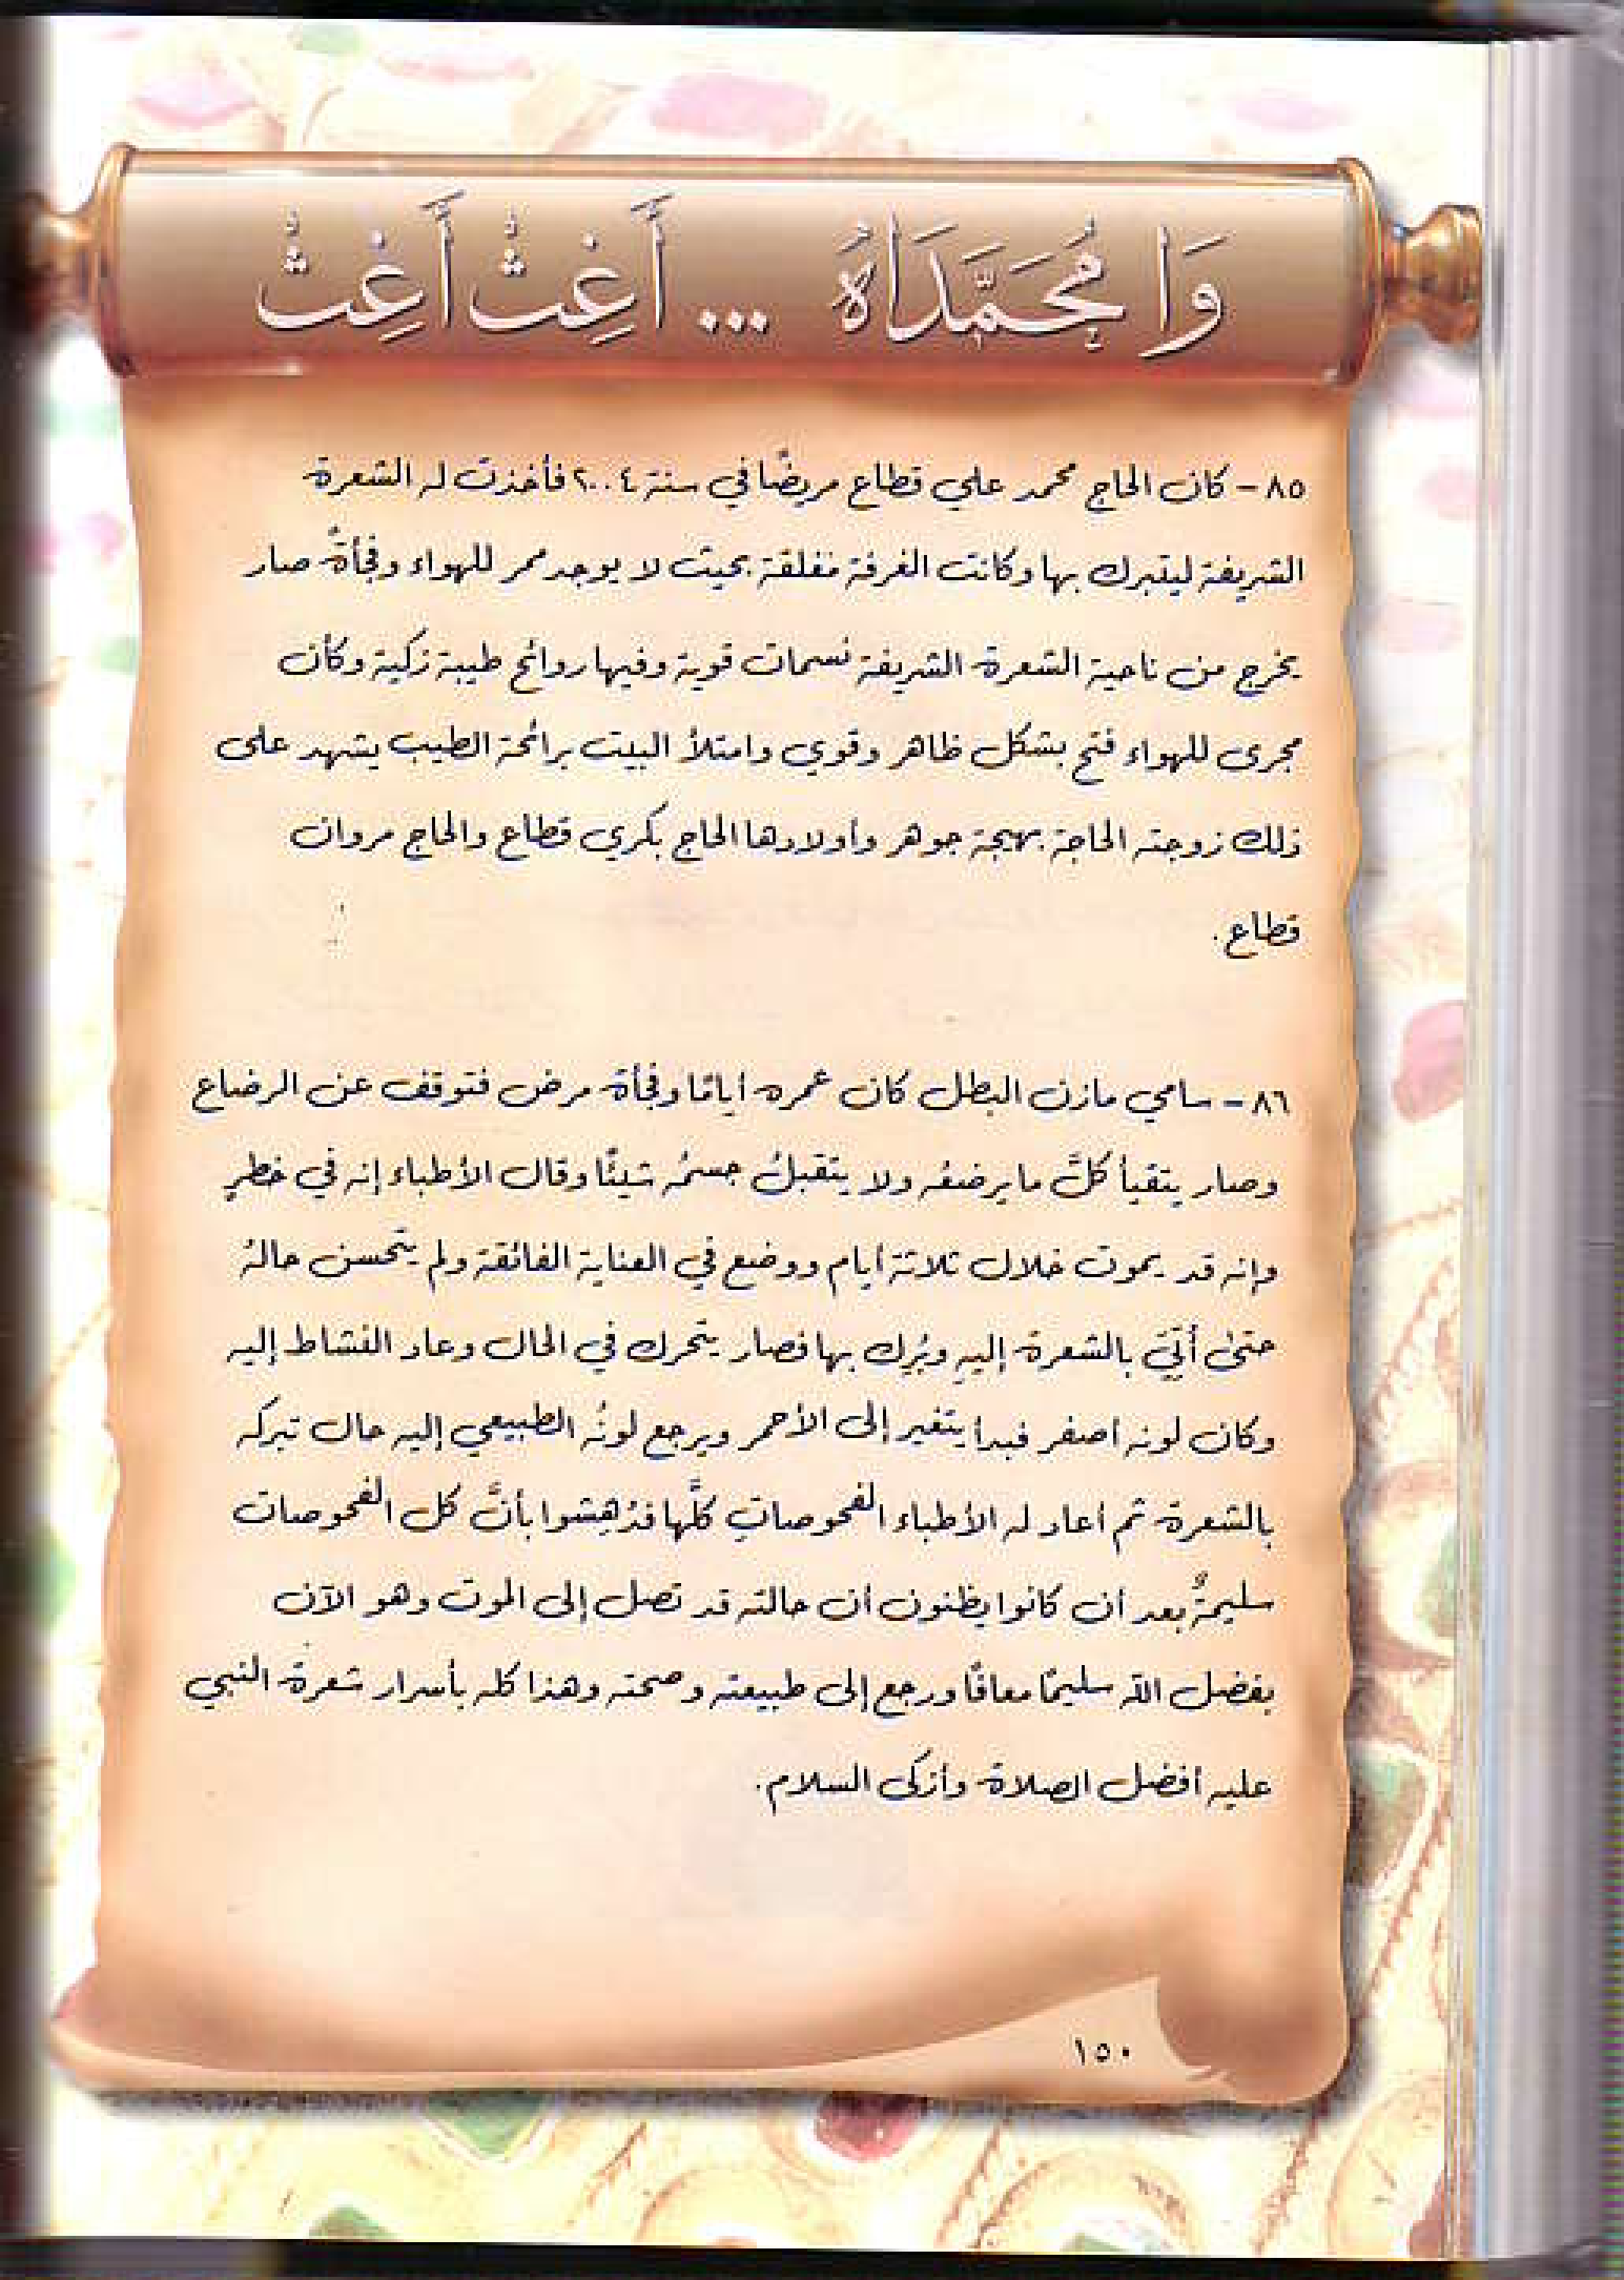 وَا مُحَمَّدَاهُ ... أَغِثْ أَغِثْ
٨٥ - كان الحاج محمد علي قطاع مريضًا في سنة ٢٠٠٤ فأخذت له الشعرة
الشريفة ليتبرك بها وكانت الغرفة مغلقة بحيث لا يوجد ممر للهواء وفجأةً صار
يخرج من ناحية الشعرة الشريفة نسمات قوية وفيها روائح طيبة زكية وكأن
مجرى للهواء فتح بشكل ظاهر وقوي وامتلأ البيت برائحة الطيب يشهد على
ذلك زوجته الحاجة بهيجة جوهر وأولادها الحاج بكري قطاع والحاج مروان
قطاع.
٨٦ - سامي مازن البطل كان عمره أيامًا وفجأة مرض فتوقف عن الرضاع
وصار يتقيأ كلَّ ما يرضعه ولا يتقبلُ جسمُه شيئًا وقال الأطباء إنه في خطرٍ
وإنه قد يموت خلال ثلاثة أيام ووضع في العناية الفائقة ولم يتحسن حالهُ
حتى أُتيَ بالشعرة إليهِ وبُرِك بها فصار يتحرك في الحال وعاد النشاط إليه
وكان لونه أصفر فبدأ يتغير إلى الأحمر ويرجع لونُه الطبيعي إليه حال تبركه
بالشعرة ثم أعاد له الأطباء الفحوصاتِ كلَّها فدُهِشوا بأنَّ كل الفحوصات
سليمةٌ بعد أن كانوا يظنون أن حالته قد تصل إلى الموت وهو الآن
بفضل الله سليمًا معافًا ورجع إلى طبيعته وصحته وهذا كله بأسرار شعرة النبي
عليه أفضل الصلاة وأزكى السلام.
١٥٠